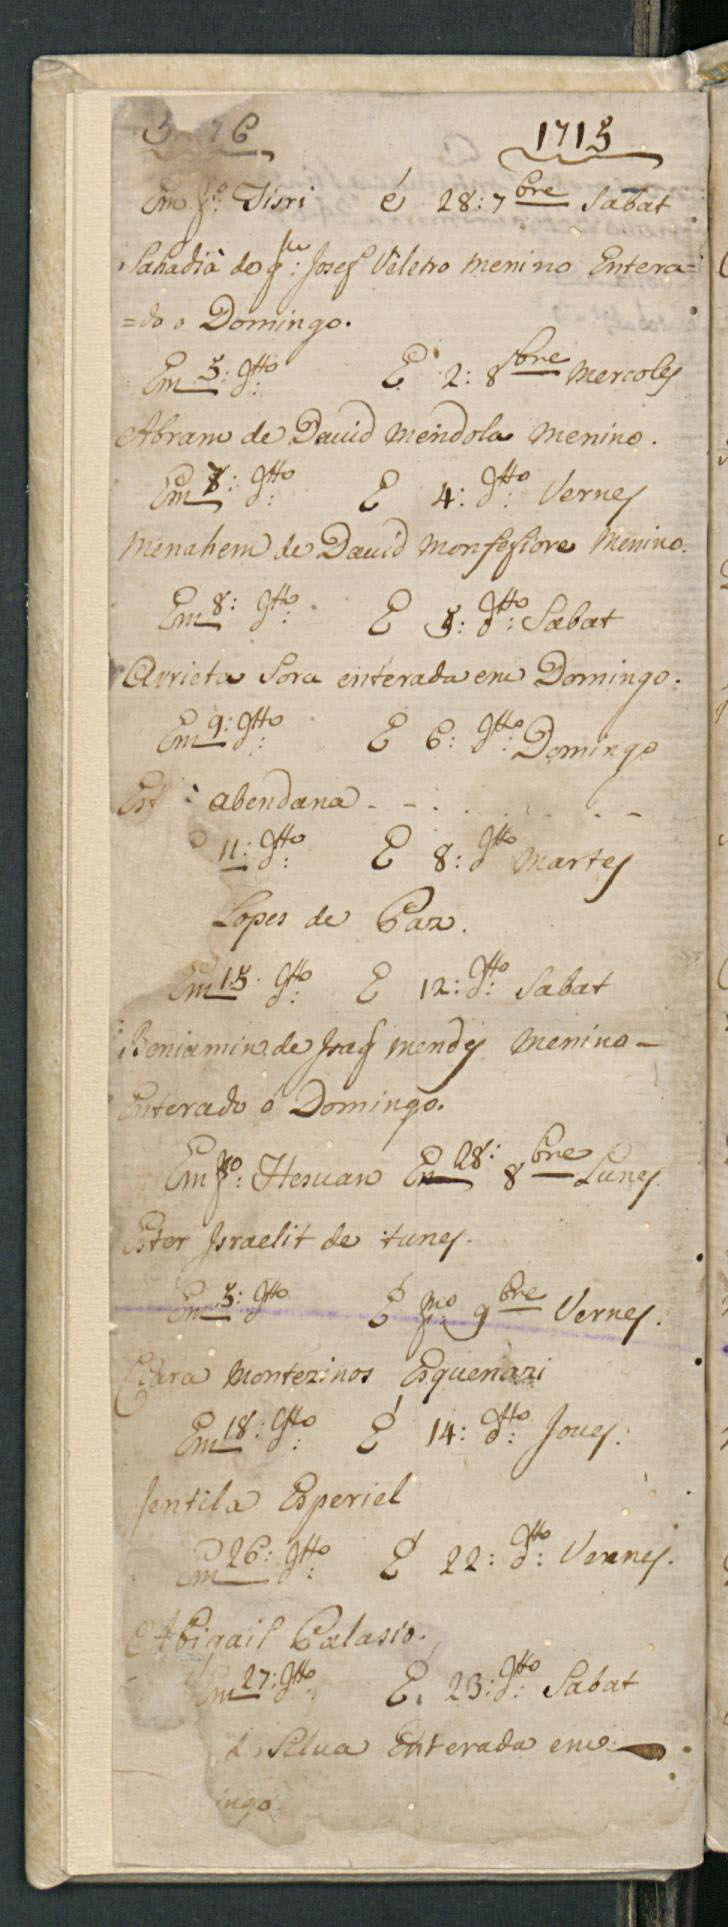 5476 1715
Em pº: Tisri é 28: 7bre Sabat
Sahadia de Josef Veletro menino Entera=
=do o Domingo.
Em 5: dtto E 2: 8bre Mercoles
Abram de David Mendola menino.
Em 7: dtto E 4: dtto: Vernes
Menahem de David Monfefiore Menino.
Em 8: dtto: E 5: dtto: Sabat
Arrieta Sora enterada em Domingo.
Em 9: dtto: E 6: dtto: Domingo
Est abendana
11: dtto: E 8: dtto Martes
Lopes de Paz.
Em 15 dtto: E 12: dtto: Sabat
Beniamin de Isaq mendes menino –
Enterado o Domingo.
Em pº: Hesuan En 28: 8bre Lunes
Ester Israelit de tunes.
Em 5: dtto E pmo 9bre Vernes.
Clara Montezinos Esquenazi
Em 18: dtto: E 14: dtto: Joues:
Jentila Esperiel
Em 26: dtto: E 22: dtto: Vernes.
Abigail Palasio.
Em 27: dtto: E 23: dtto: Sabat
Silua Enterada em
ingo